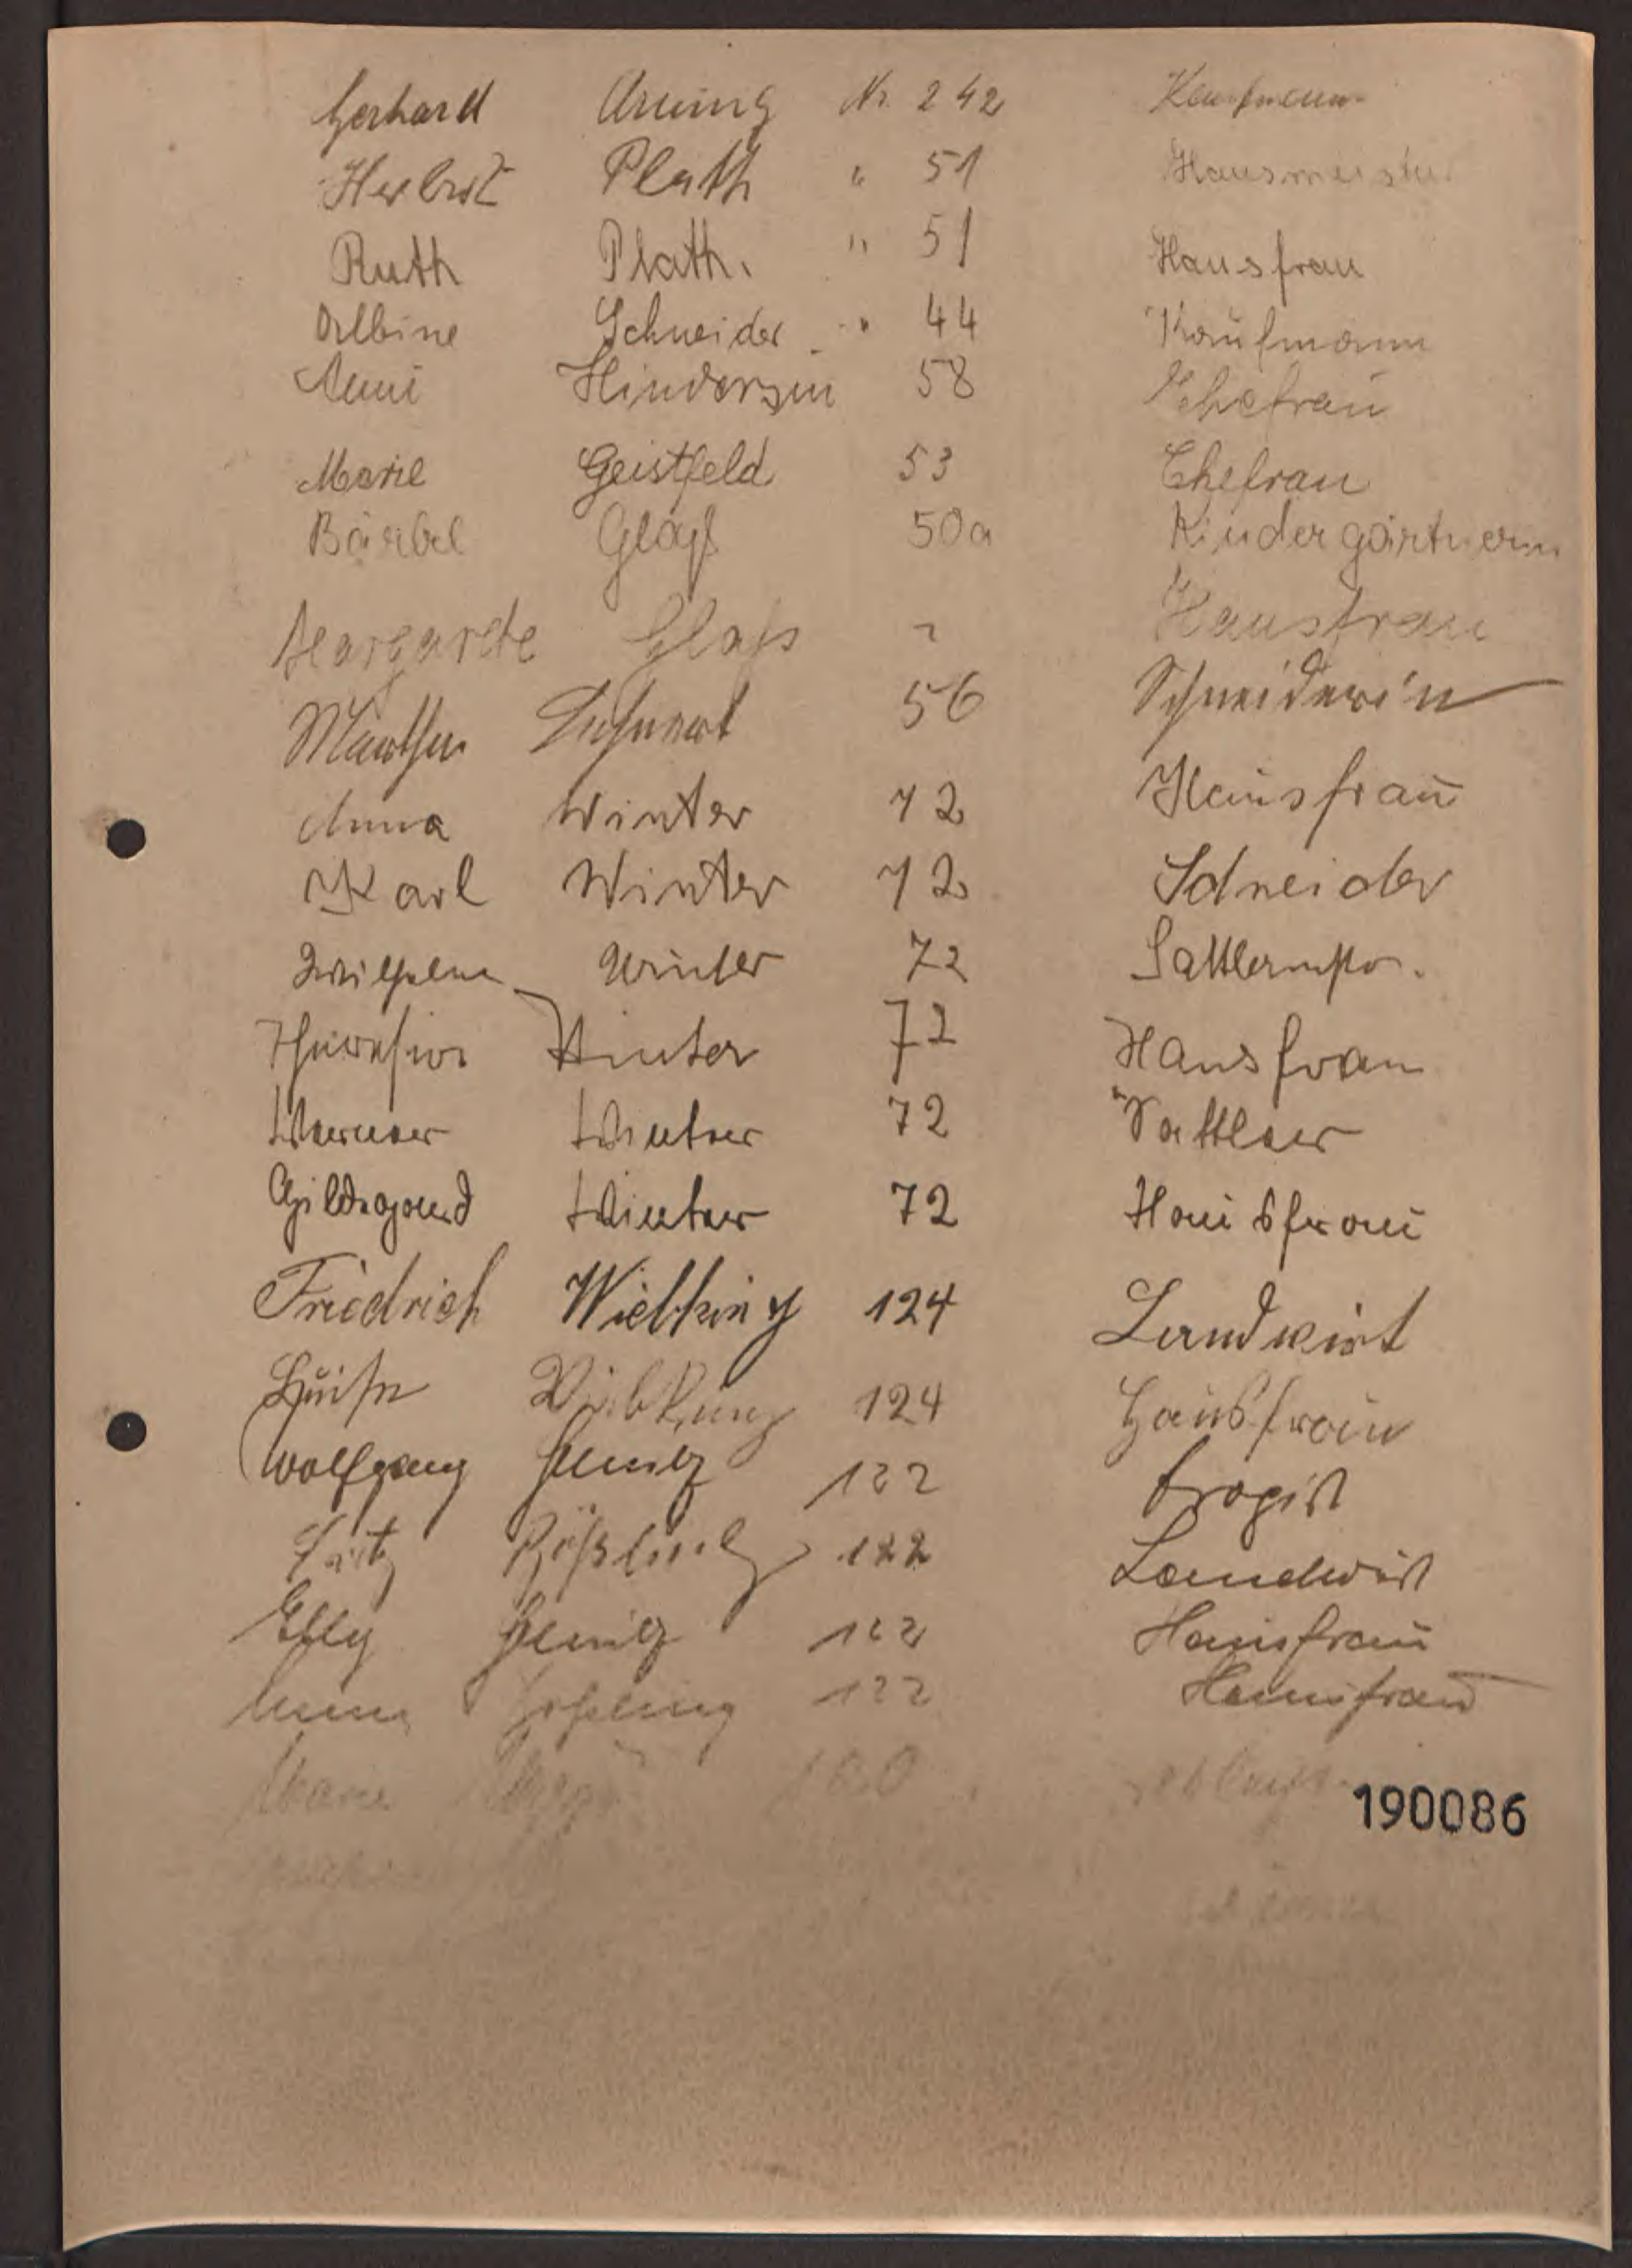 Gerhard Arning Nr. 242 Kaufmann
Herbert Plath " 51 Hausmeister
Ruth Plath. " 51 Hausfrau
Albine Schneider " 44 Kaufmann
Anni Hindersin 58 Ehefrau
Marie Geistfeld 53 Ehefrau
Bärbel Glaß 50a Kindergärtnerin
Margarete Glaß " Hausfrau
Martha 56 Schneiderin
Anna Winter 72 Hausfrau
Karl Winter 72 Schneider
Wilhelm Winter 72 Sattlermstr.
Winter 72 Hausfrau
Werner Winter 72 Sattler
Hildegard Winter 72 Hausfrau
Friedrich Wiebking 124 Landwirt
Luise Wiebking 124 Hausfrau
Wolfgang 122 Drogist
Fritz Rößling 122 Landwirt
Elly 122 Hausfrau
122 Hausfrau
Marie
190086